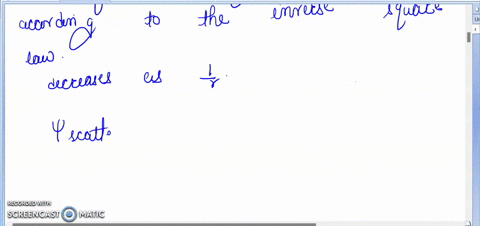 according to the inverse square
law.
decreases as 1/r.
ψ scatt.
RECORDED WITH
SCREENCAST MATIC